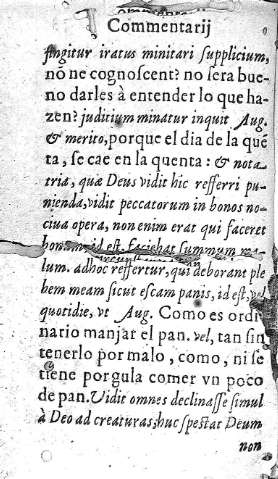 Commentarij
fingitur iratus minitari supplicium,
nõ ne cognoscent? no sera bue-
no darles à entender lo que ha-
zen? juditium minatur inquit Aug.
& merito, porque el dia de la quẽ
ta, se cae en la quenta: & nota
tria, quæ Deus vidit hic refferri pu-
nienda, vidit peccatorum in bonos no-
ciua opera, non enim erat qui faceret
bonum, id est, faciebat summum ma-
lum. adhoc reffertur, qui deborant ple
bem meam sicut escam panis, id est, vel
quotidie, vt Aug. Como es ordi
nario manjar el pan. vel, tan sin
tenerlo por malo, como, ni se
tiene por gula comer vn poco
de pan. Vidit omnes declinasse simul
à Deo ad creaturas, huc spectat Deum
non